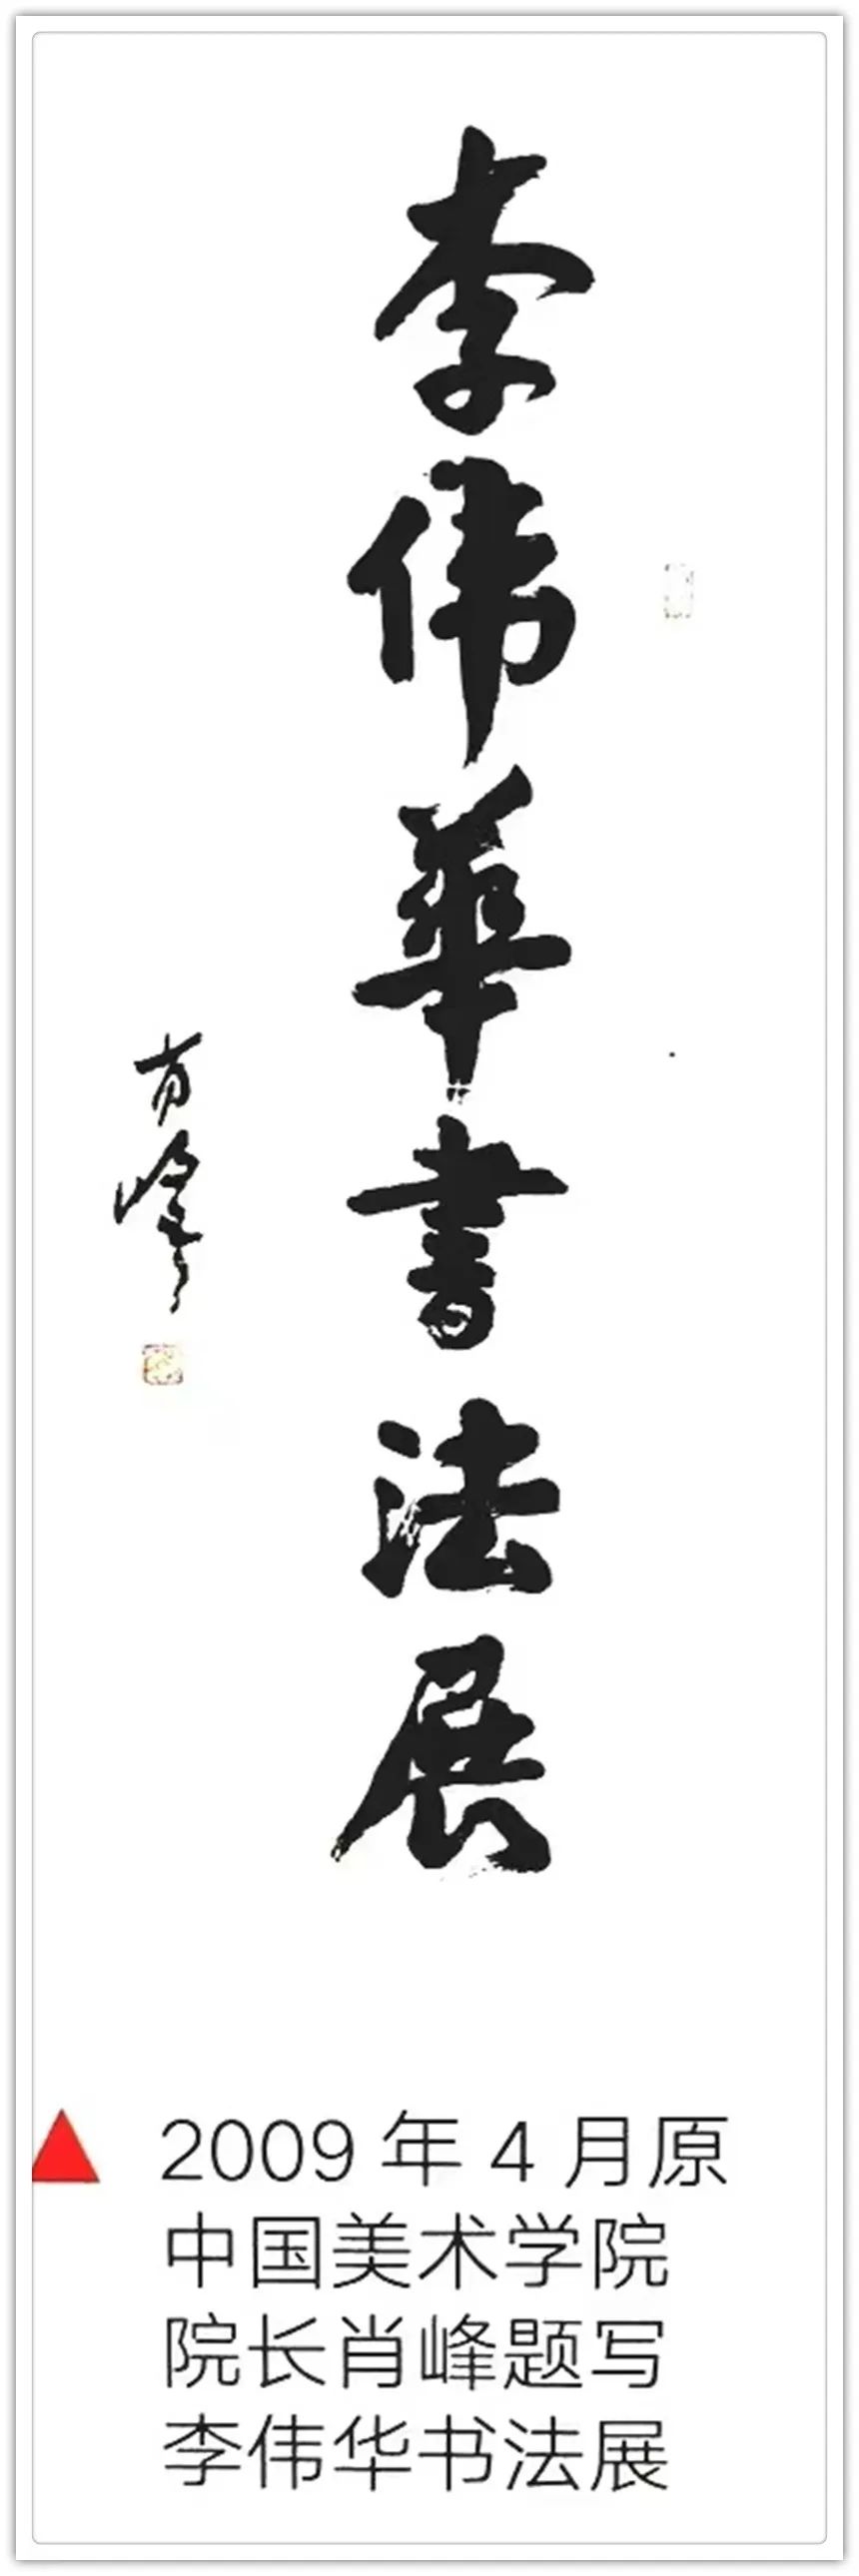 李伟華書法展
肖峰
2009年4月原
中国美术学院
院长肖峰题写
李伟华书法展